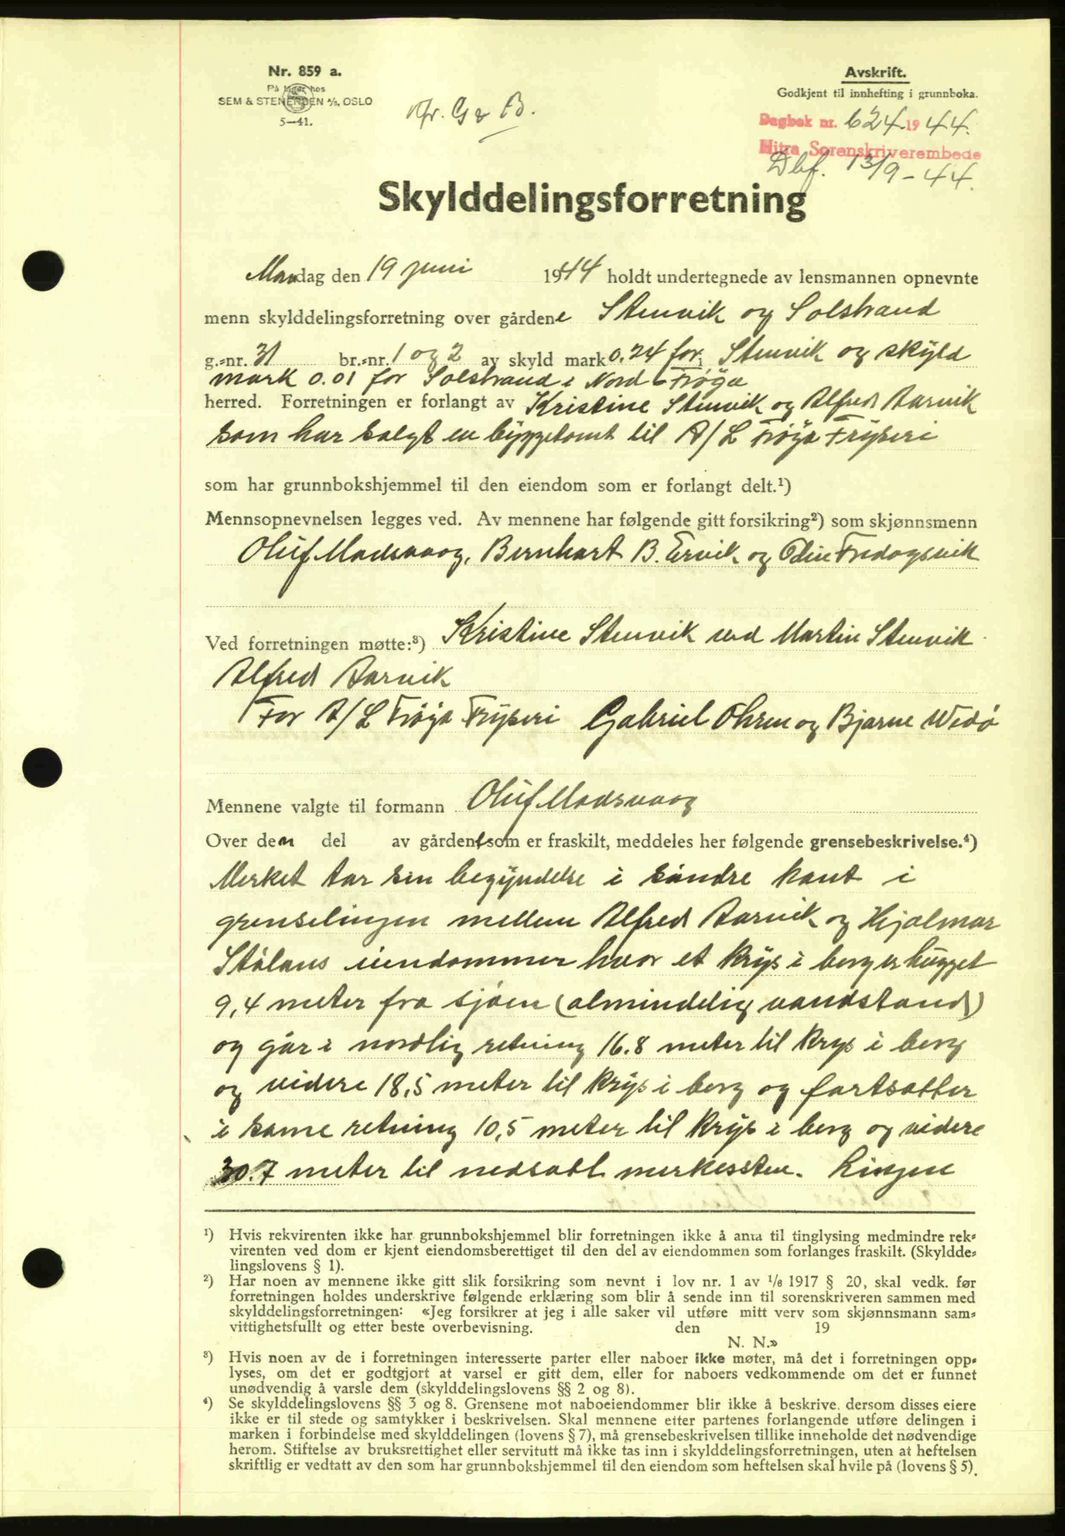 Nr. 859 a.
På lager hos
SEM & STENERSEN A/S, OSLO
5—41.
Nr. G & B.
Avskrift.
Godkjent til innhefting i grunnboka.
Dagbok nr. 624 1944.
Hitra Sorenskriverembede
Dbf. 13/9-44.
Skylddelingsforretning
Mandag den 19 juni 1944 holdt undertegnede av lensmannen opnevnte
menn skylddelingsforretning over gårdene Stenvik og Solstrand
g.=nr. 31 br.=nr. 1 og 2 av skyld mark 0.24 for i Stenvik og skyld
mark 0.01 for Solstrand i Nord-Frøya
herred. Forretningen er forlangt av Kristine Stenvik og Alfred Aarvik
som har solgt en byggetomt til A/L Frøya Fryseri
som har grunnbokshjemmel til den eiendom som er forlangt delt.¹)
Mennsopnevnelsen legges ved. Av mennene har følgende gitt forsikring²) som skjønnsmenn
Oluf Madsvaag, Bernhart B. Ervik og Odin Fredagsvik
Ved forretningen møtte:³) Kristine Stenvik ved Martin Stenvik
Alfred Aarvik
For A/L Frøya Fryseri Gabriel Ohren og Bjarne Wedø
Mennene valgte til formann Oluf Madsvaag
Over den del av gården som er fraskilt, meddeles her følgende grensebeskrivelse.⁴)
Merket tar sin begyndelse i søndre kant i
grenselinjen mellem Alfred Aarvik og Hjalmar
Stølans eiendommer hvor et krys i berg er hugget
9,4 meter fra sjøen (almindelig vandstand)
og går i nordlig retning 16.8 meter til krys i berg
og videre 18,5 meter til krys i berg og fortsatter
i same retning 10,5 meter til krys i berg og videre
30.7 meter til nedsatt merkessten. Linjen
¹) Hvis rekvirenten ikke har grunnbokshjemmel blir forretningen ikke å anta til tinglysing medmindre rek=
virenten ved dom er kjent eiendomsberettiget til den del av eiendommen som forlanges fraskilt. (Skyldde=
lingslovens § 1).
²) Har noen av mennene ikke gitt slik forsikring som nevnt i lov nr. 1 av 1/6 1917 § 20, skal vedk. før
forretningen holdes underskrive følgende erklæring som blir å sende inn til sorenskriveren sammen med
skylddelingsforretningen: «Jeg forsikrer at jeg i alle saker vil utføre mitt verv som skjønnsmann sam=
vittighetsfullt og etter beste overbevisning. den 19
N. N.»
³) Hvis noen av de i forretningen interesserte parter eller naboer ikke møter, må det i forretningen opp=
lyses, om det er godtgjort at varsel er gitt dem, eller for naboers vedkommende om det er funnet
unødvendig å varsle dem (skylddelingslovens §§ 2 og 8).
⁴) Se skylddelingslovens §§ 3 og 8. Grensene mot naboeiendommer blir ikke å beskrive, dersom disses eiere
ikke er til stede og samtykker i beskrivelsen. Skal mennene etter partenes forlangende utføre delingen i
marken i forbindelse med skylddelingen (lovens § 7), må grensebeskrivelsen tillike inneholde det nødvendige
herom. Stiftelse av bruksrettighet eller servitutt må ikke tas inn i skylddelingsforretningen, uten at heftelsen
skriftlig er vedtatt av den som har grunnbokshjemmel til den eiendom som heftelsen skal hvile på (lovens § 5).